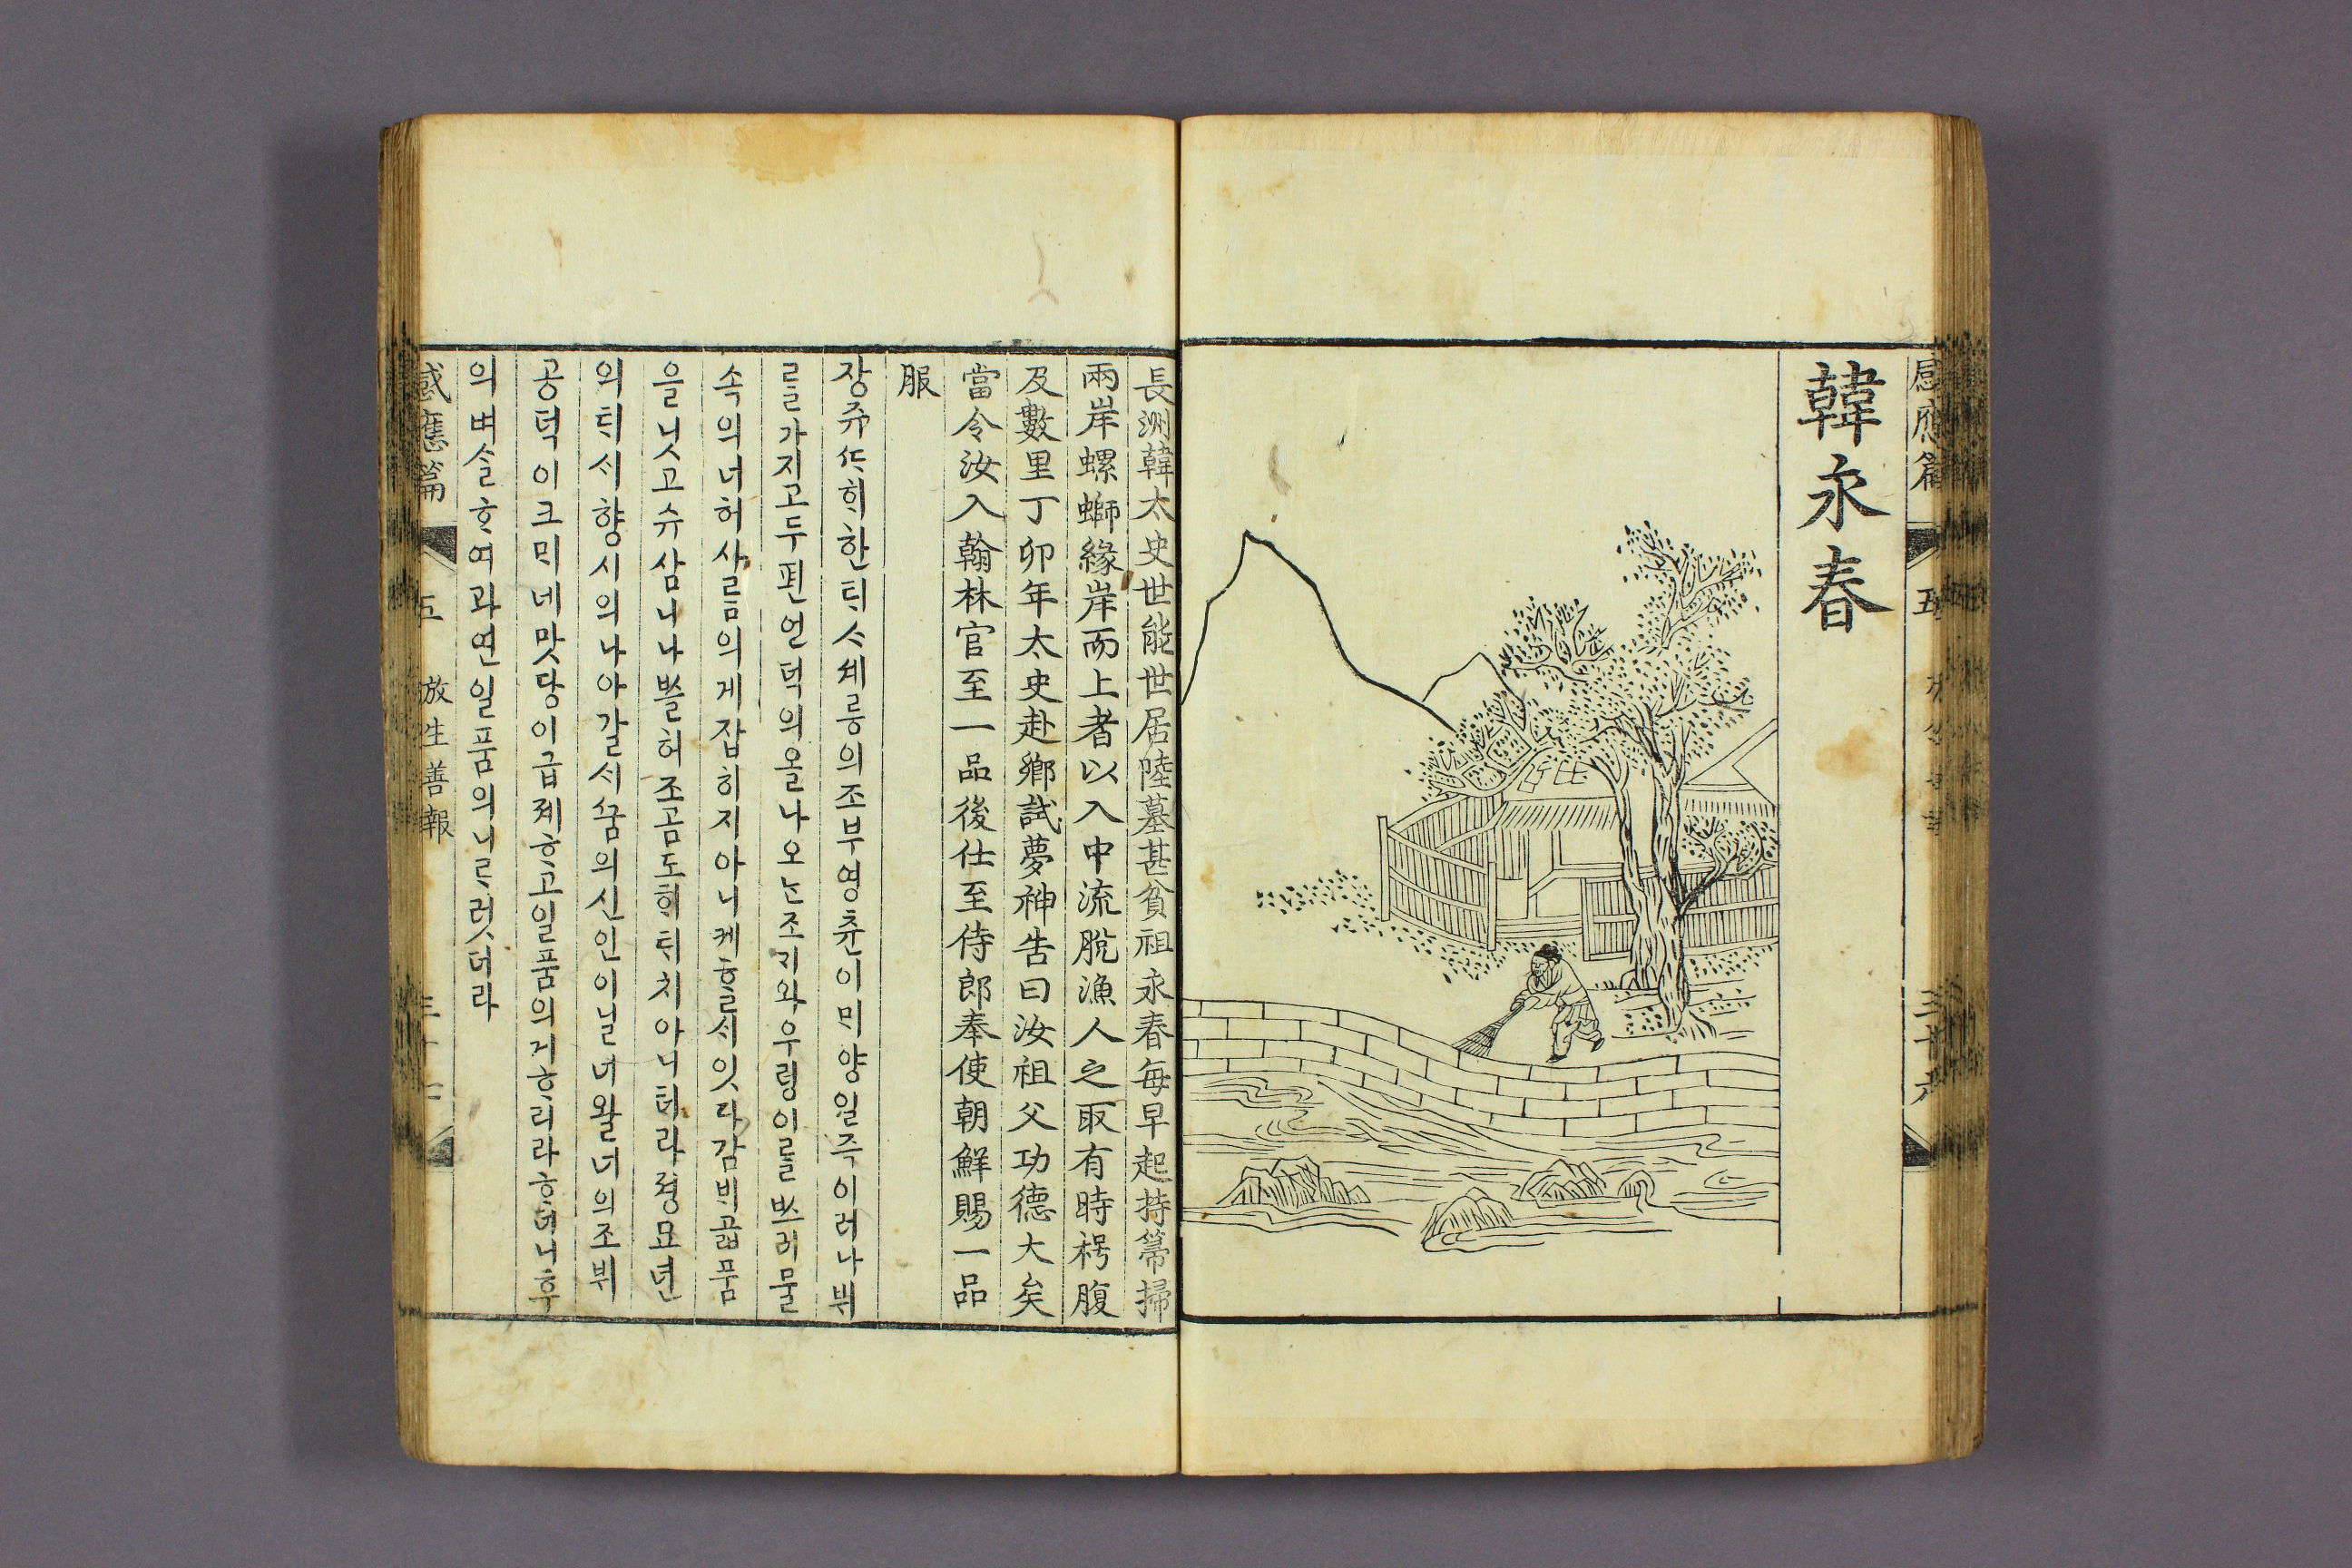 感應篇 五
韓永春
長洲韓太史世能世居陸墓甚貧祖永春每早起持箒掃
兩岸螺螄緣岸而上者以入中流脫漁人之取有時枵腹
及數里丁卯年太史赴鄉試夢神告曰汝祖父功德大矣
當令汝入翰林官至一品後仕至侍郎奉使朝鮮賜一品
服
쟝쥬ᄯᅡ희한태ᄉᆞ셰릉의조부영츈이ᄆᆡ양일즉이러나뷔
를가지고두편언덕의올나오ᄂᆞᆫ조ᄀᆡ와우렁이를ᄡᅳ러물
속의너허사ᄅᆞᆷ의게잡히지아니케ᄒᆞᆯᄉᆡ잇다감ᄇᆡ곫픔
을닛고슈삼니나ᄡᅳᆯ허조곰도ᄒᆡᄐᆡ치아니터라졍묘년
의태ᄉᆡ향시의나아갈ᄉᆡᄭᅮᆷ의신인이닐너왈너의조뷔
공덕이크ᄆᆡ네맛당이급졔ᄒᆞ고일품의게ᄒᆞ리라ᄒᆞ더니후
의벼ᄉᆞᆯᄒᆞ여과연일품의니ᄅᆞ럿더라
感應篇 五 放生善報